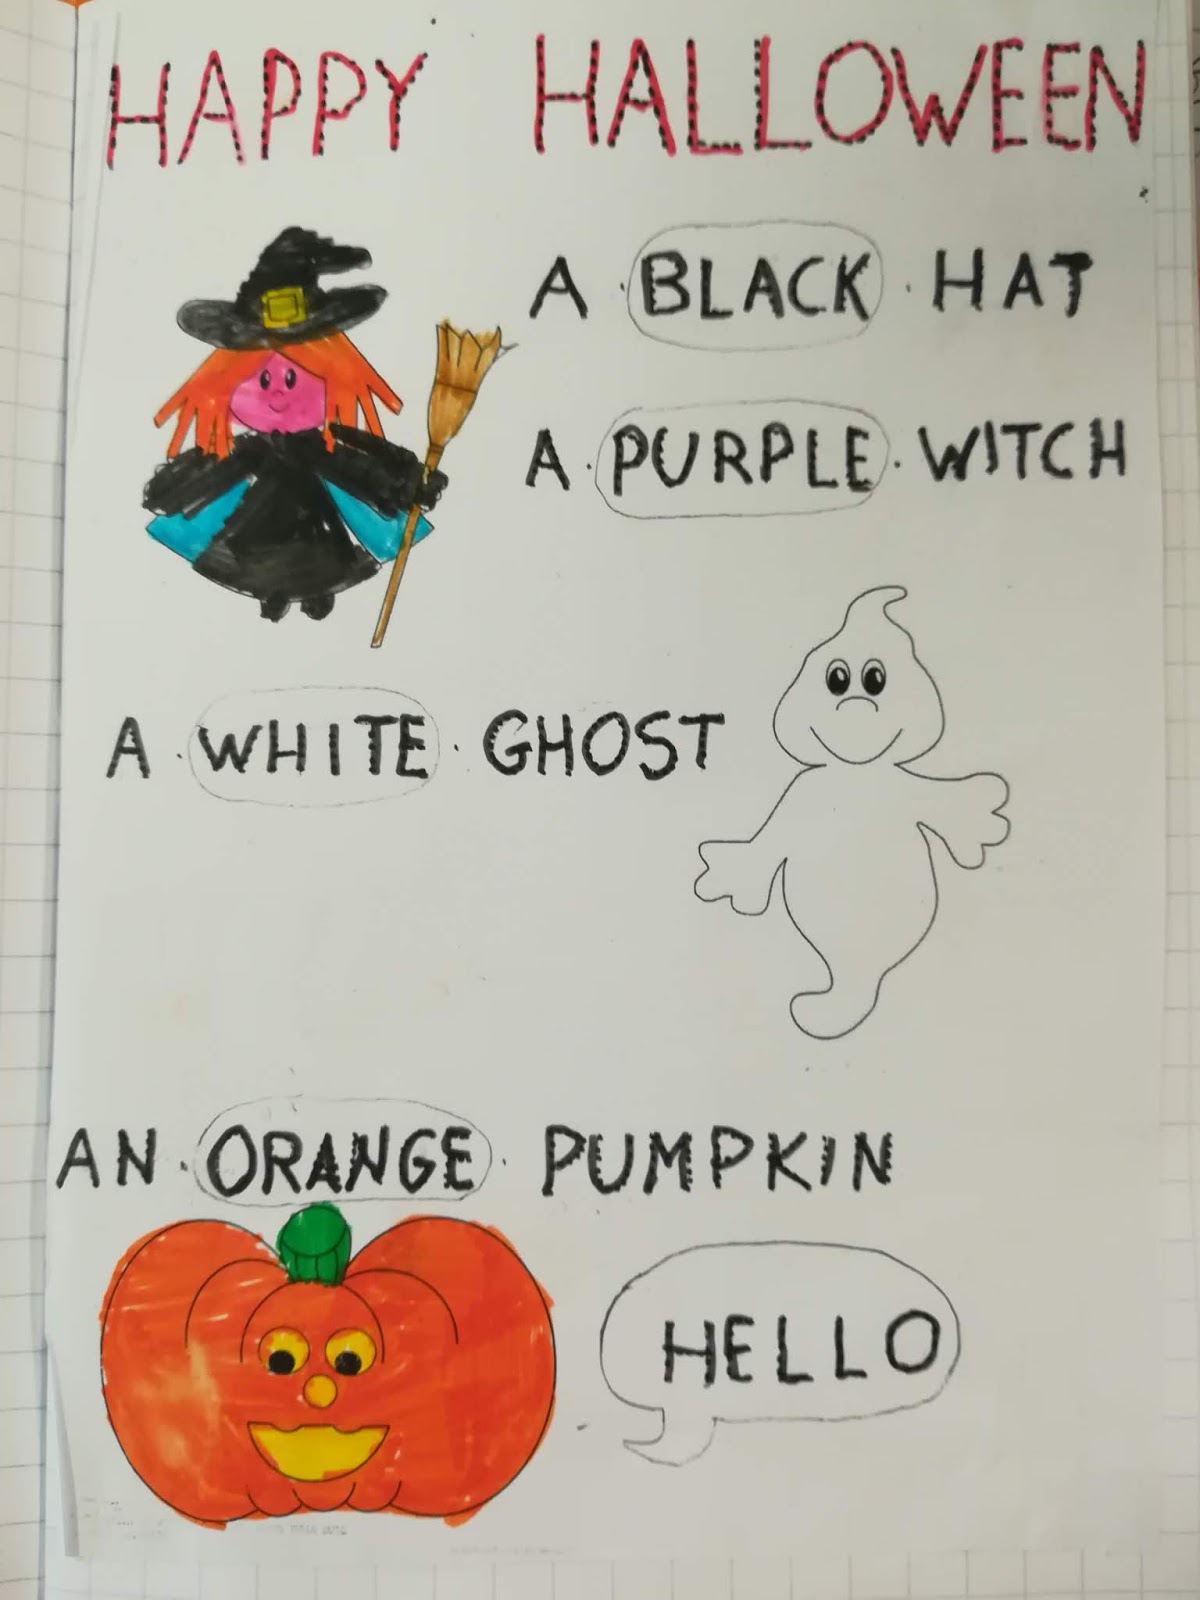 HAPPY HALLOWEEN
A BLACK HAT
A PURPLE WITCH
A WHITE GHOST
AN ORANGE PUMPKIN
HELLO